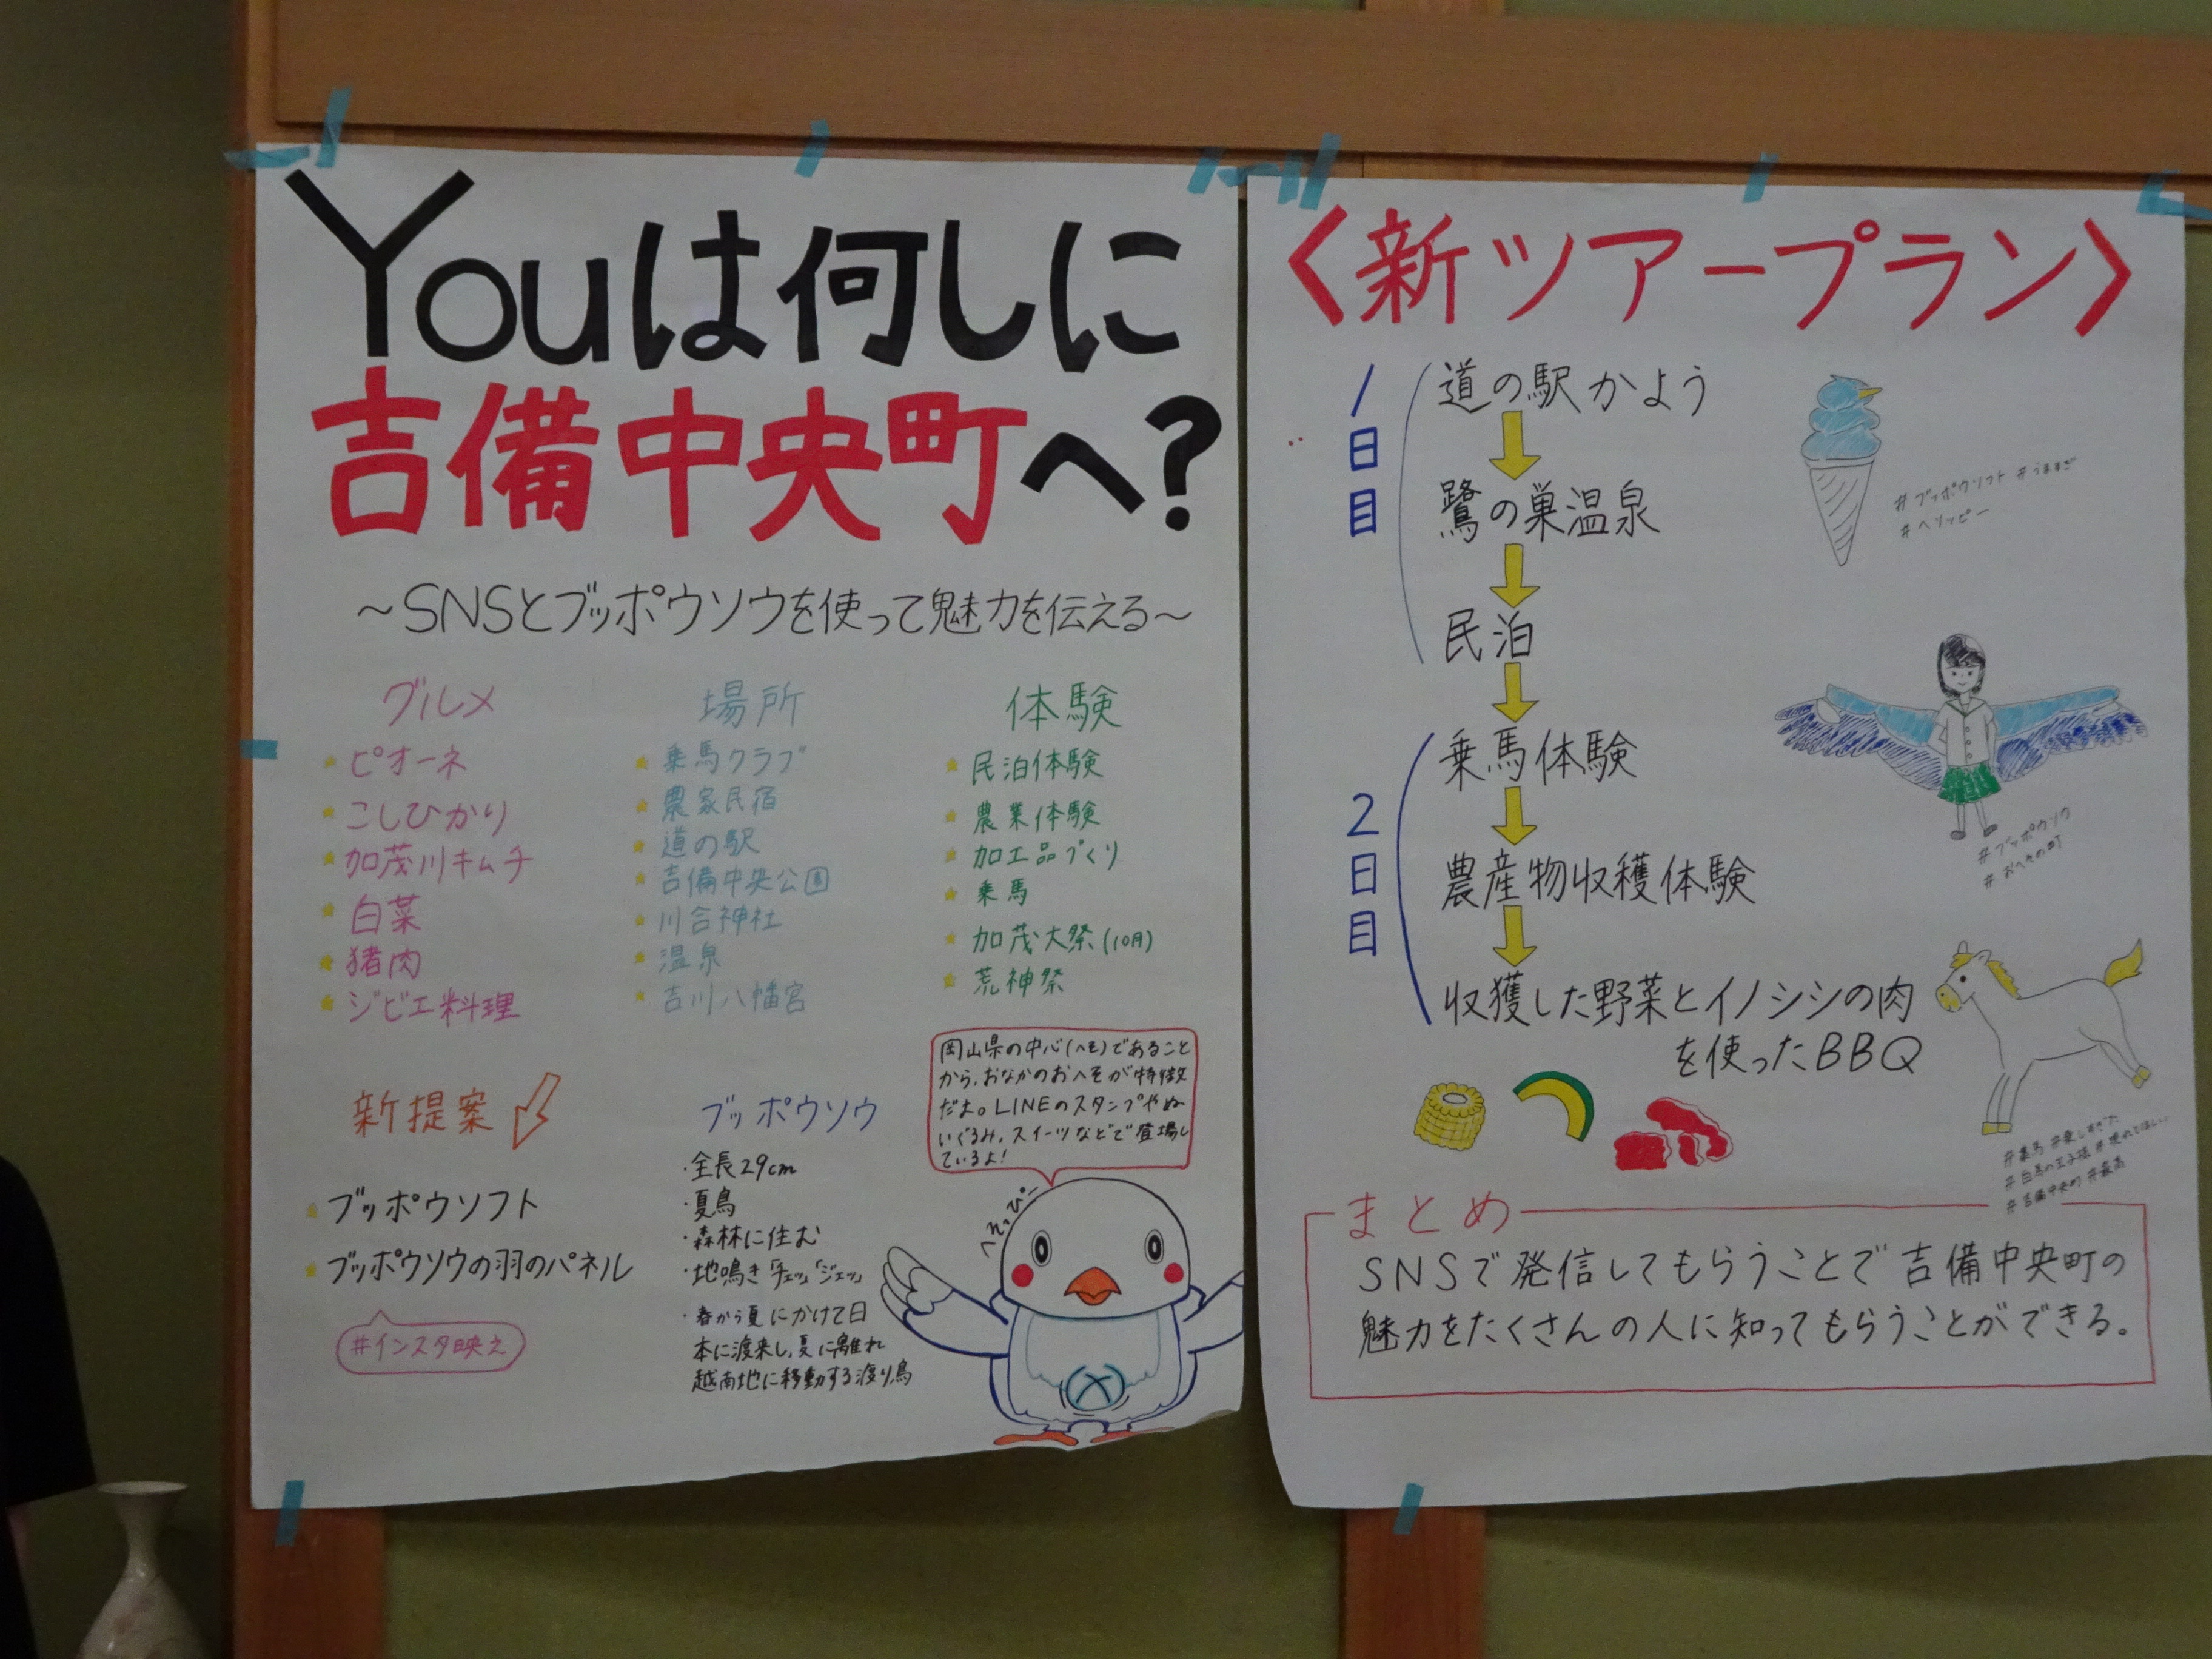 Youは何しに
吉備中央町へ?
～SNSとブッポウソウを使って魅力を伝える～
グルメ
ピオーネ
こしひかり
加茂川キムチ
白菜
猪肉
ジビエ料理
場所
乗馬クラブ
農家民宿
道の駅
吉備中央公園
川合神社
温泉
吉川八幡宮
体験
民泊体験
農業体験
加工品づくり
乗馬
加茂大祭(10月)
荒神祭
新提案
ブッポウソフト
ブッポウソウの羽のパネル
#インスタ映え
ブッポウソウ
・全長29cm
・夏鳥
・森林に住む
・地鳴き「チェッ」「ジェッ」
・春から夏にかけて日
本に渡来し、夏に離れ
越南地に移動する渡り鳥
岡山県の中心(へそ)であること
から、おなかのおへそが特徴
だよ。LINEのスタンプやぬ
いぐるみ、スイーツなどで登場し
ているよ!
へそっぴー
〈新ツアープラン〉
1日目
道の駅かよう
鷺の巣温泉
民泊
2日目
乗馬体験
農産物収穫体験
収獲した野菜とイノシシの肉
を使ったBBQ
#ブッポウソフト #うますぎ
#へソッピー
#ブッポウソウ
#おへその町
#乗馬 #楽しすぎた
#白馬の王子様
#吉備中央町 #最高
まとめ
SNSで発信してもらうことで吉備中央町の
魅力をたくさんの人に知ってもらうことができる。